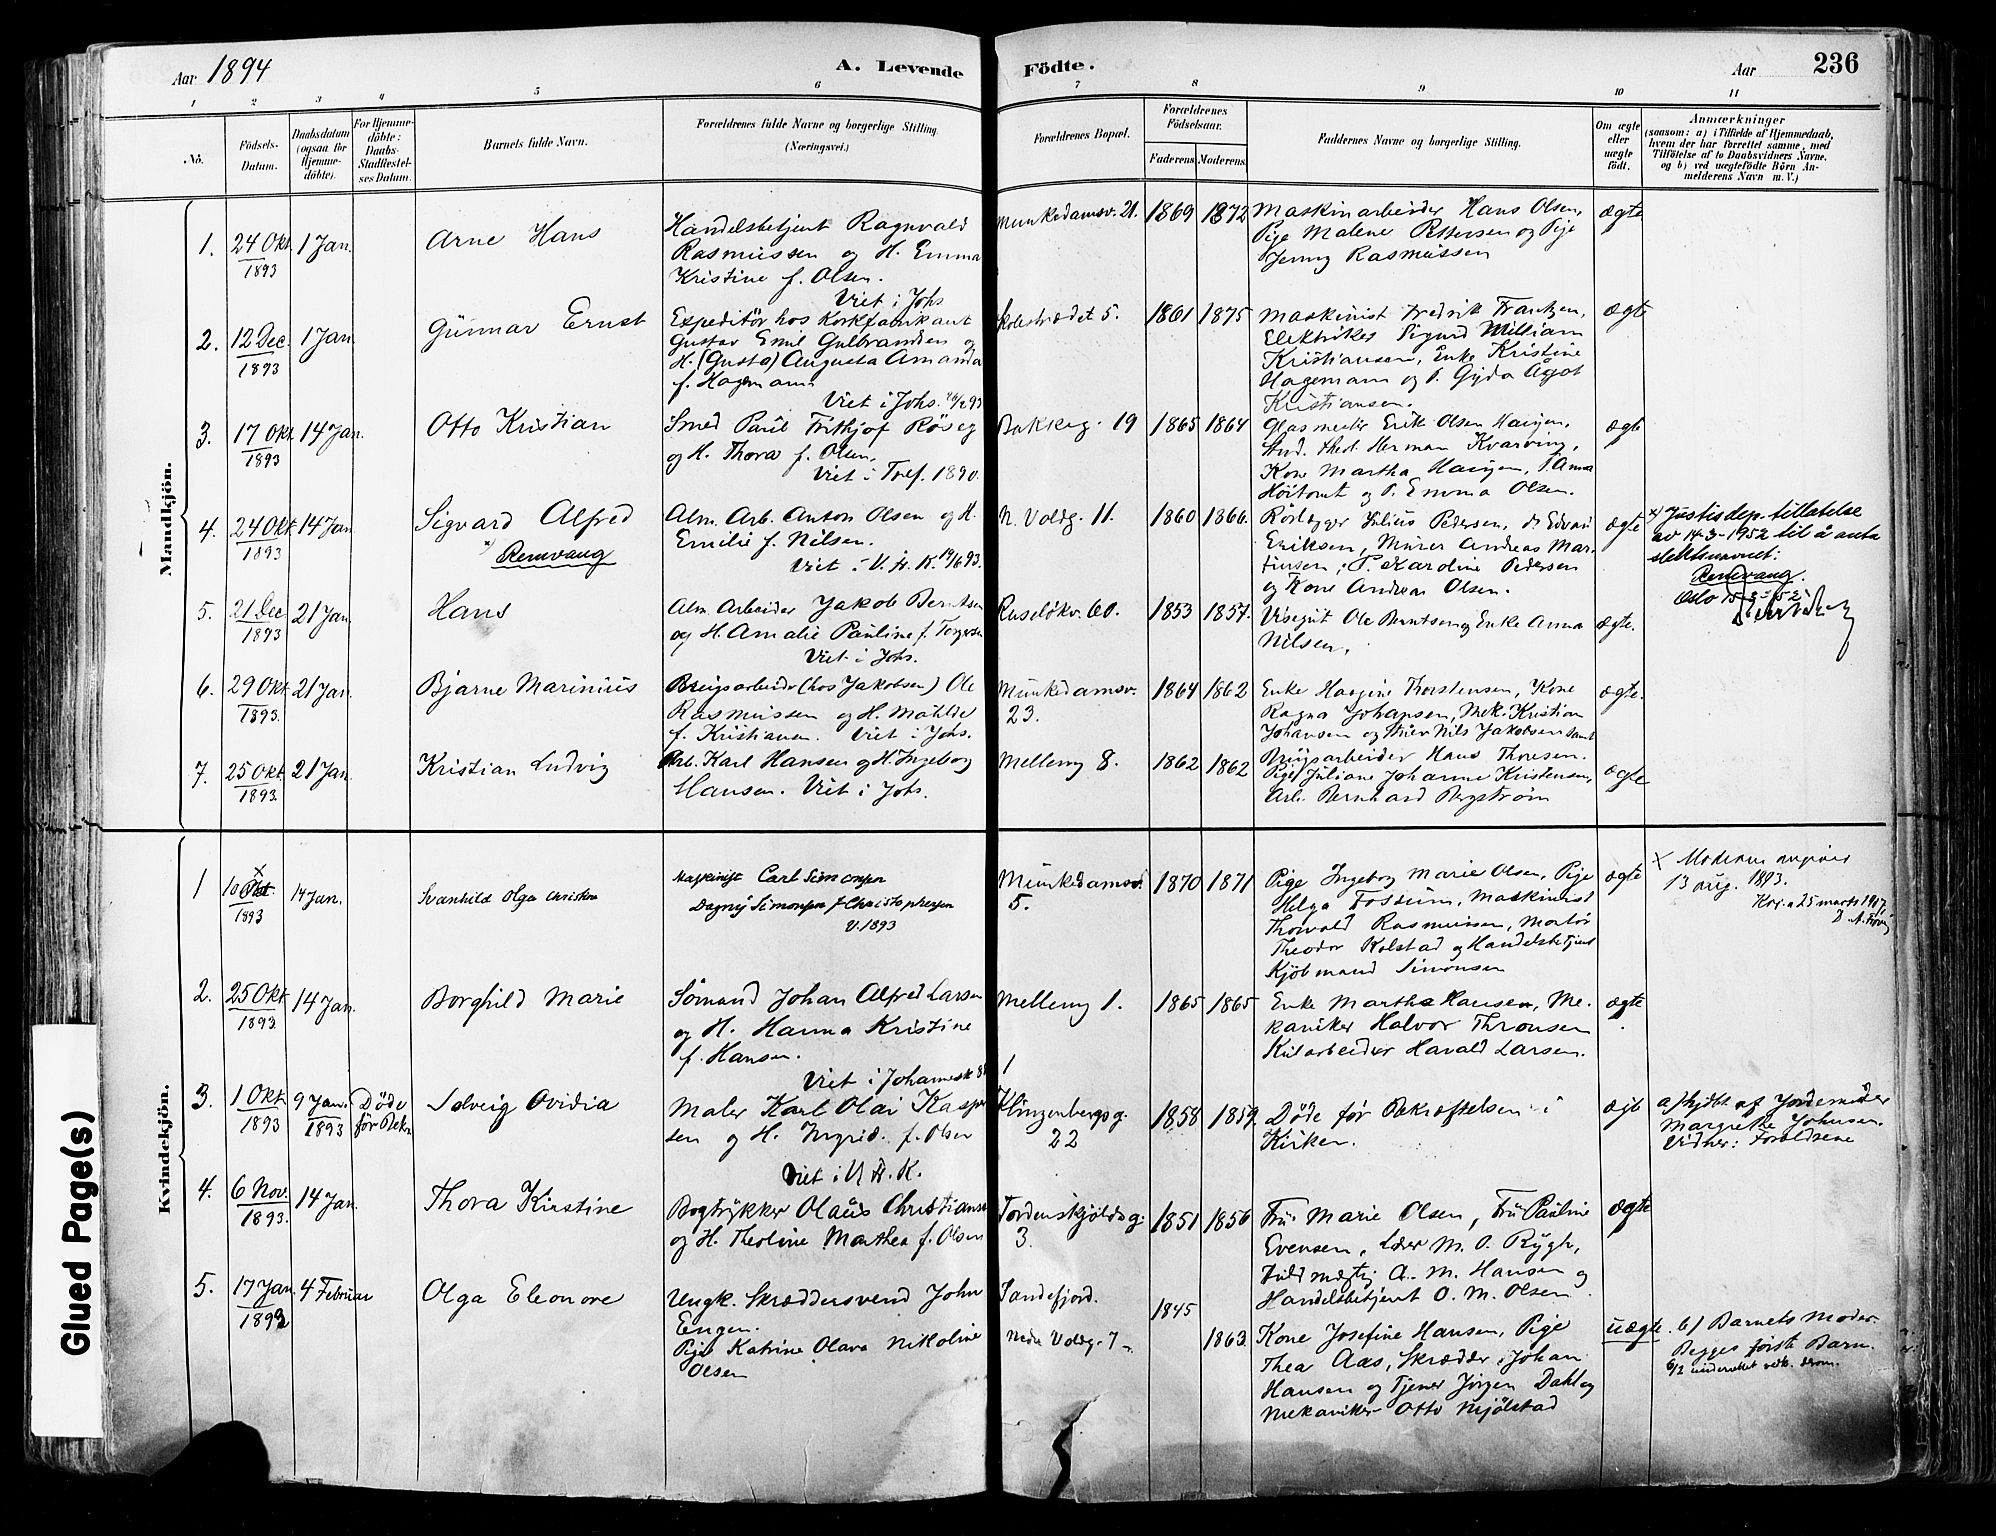 Aar 1894
A. Levende
Födte.
Aar
236
1 2 3 4 5 6 7 8 9 10 11
No.
Födsels-
Datum.
Daabsdatum
(ogsaa for
Hjemme-
döbte).
For Hjemme-
döbte:
Daabs-
Stadfæstel-
ses Datum.
Barnets fulde Navn.
Forældrenes fulde Navne og borgerlige Stilling.
(Næringsvei.)
Forældrenes Bopæl.
Forældrenes
Födselsaar.
Faderens.
Moderens.
Faddernes Navne og borgerlige Stilling.
Om ægte
eller
uægte
födt.
Anmærkninger
(saasom: a) i Tilfælde af Hjemmedaab,
hvem der har forrettet samme, med
Tilföielse af to Daabsvidners Navne,
og b) ved uægtefödte Börn An-
melderens Navn m. V.)
Mandkjön.
1.
24 Okt.
1893
1 Jan.
Arne Hans
Handelsbetjent Ragnvald
Rasmussen og H. Emma
Kristine f. Olsen.
Viet i Johs
Munkedamsv. 21.
1869
1872
Maskinarbeider Hans Olsen,
Pige Malene Pettersen og Pige
Jenny Rasmussen
ægte
2.
12 Dec.
1893
1 Jan.
Gunnar Ernst
Expeditör hos Korkfabrikant
Gustav Emil Gulbrandsen og
H. (Gusta) Augusta Amanda
f. Hagemann
Viet i Johs.
Skolestrædet 5.
1861
1875
Maskinist Fredrik Frantzen,
Elektriker Sigurd William
Kristiansen, Enke Kristine
Hagemann og P. Gyda Ågot
Kristiansen.
ægte
3.
17 Okt.
1893
14 Jan.
Otto Kristian
Smed Paul Frithjof Röseg
og H. Thora f. Olsen.
Viet i Tref. 1890.
Bakkeg. 19
1865
1864
Glasmester Erik Olsen Haugen,
Stud. theol. Herman Kvarving,
Kone Martha Haugen, P. Anna
Höitomt og P. Emma Olsen.
ægte
4.
24 Okt.
1893
14 Jan
Sigvard Alfred
x) Remvang
Alm. Arb. Anton Olsen og H.
Emilie f. Nilsen.
Viet i V. A. K. 19/6 93.
N. Voldg. 11.
1860
1866.
Rörlægger Julius Pedersen, do Edvard
Eriksen, Murer Andreas Mar-
tinsen, P. Karoline Pedersen
og Kone Andrea Olsen.
ægte
x) Justisdep. tillatelse
av 14-3-1952 til å anta
slektsnavnet:
Remvang.
Oslo 15-3-52.
5.
21 Dec
1893
21 Jan.
Hans
Alm. Arbeider Jakob Berntsen
og H. Amalie Pauline f. Torgersen
Viet i Johs.
Ruselökv. 60.
1853
1857.
Visegut Ole Berntsen og Enke Anna
Nilsen.
ægte.
6.
29 Okt.
1893.
21 Jan.
Bjarne Marinius
Brugsarbeider (hos Jakobsen) Ole
Rasmussen og H. Mathilde
f. Kristiansen. Viet i Johs.
Munkedamsv.
23.
1864
1862
Enke Haagine Thorstensen, Kone
Ragna Johansen, Mek. Kristian
Johansen og Nils Jakobsen samt
Brugsarbeider Hans Thoresen.
ægte.
7.
25 Okt.
1893.
21 Jan.
Kristian Ludvig
Arb. Karl Hansen og H. Ingeborg
Hansen. Viet i Johs.
Mellemg 8.
1862
1862
Pige Juliane Johanne Kristensen,
Arb. Bernhard Bergström
ægte
Kvindekjön.
1
x
10 Okt.
1893
14 Jan.
Svanhild Olga Christine
Maskinist Carl Simonsen
Dagny Simonsen f Christophersen
V. 1893
Munkedamsv.
5.
1870
1871
Pige Ingeborg Marie Olsen, Pige
Helga Fossum, Maskinist
Thorvald Rasmussen, Montör
Theodor Kolstad og Handelsbetjent
Kjöbmand Simonsen
ægte
x Moderen angiver
13 aug. 1893.
Kr.a 25 marts 1917.
2.
25 Okt.
1893.
14 Jan.
Borghild Marie
Sömand Johan Alfred Larsen
og H. Hanna Kristine
f. Hansen.
Viet i Johannesk 88
Mellemg 1.
1865
1865
Enke Martha Hansen, Me-
kaniker Halvor Thronsen
Kulearbeider Harald Larsen.
ægte
3.
1 Okt.
1893
9 Jan.
1893
Döde
för Bekr.
Solveig Ovidia
Maler Karl Olai Kasper
sen og H. Ingrid. f. Olsen
Viet i V. A. K.
Klingenbergsg.
22
1858
1859.
Döde för Bekræftelsen i
Kirken.
ægte
a/ hjdbt af Jordemoder
Margrethe Johnsen.
Vidner: Forældrene
4.
6 Nov.
1893.
14 Jan.
Thora Kirstine
Bogtrykker Olaus Christiansen
og H. Theoline Marthea f. Olsen
Tordenskjoldsg.
3.
1851
1856
Fru Marie Olsen, Fru Pauline
Evensen, Lærer M. O. Rygh,
Fuldmægtig A. M. Hansen og
Handelsbetjent O. M. Olsen.
ægte
5.
17 Jan
1893
4 Februar
Olga Eleonore
Ungk. Skræddersvend John
Engen.
Pige Katrine Olava Nikoline
Olsen
Sandefjord.
Nedre Voldg. 7
1845
1863.
Kone Josefine Hansen, Pige
Thea Aas, Skrædder Johan
Hansen og Tjener Jörgen Dahl og
Mekaniker Otto Mjölstad
uægte.
b/ Barnets Moder
Begges förste Barn.
6/2 underrettet vedk. derom.
Glued Page(s)